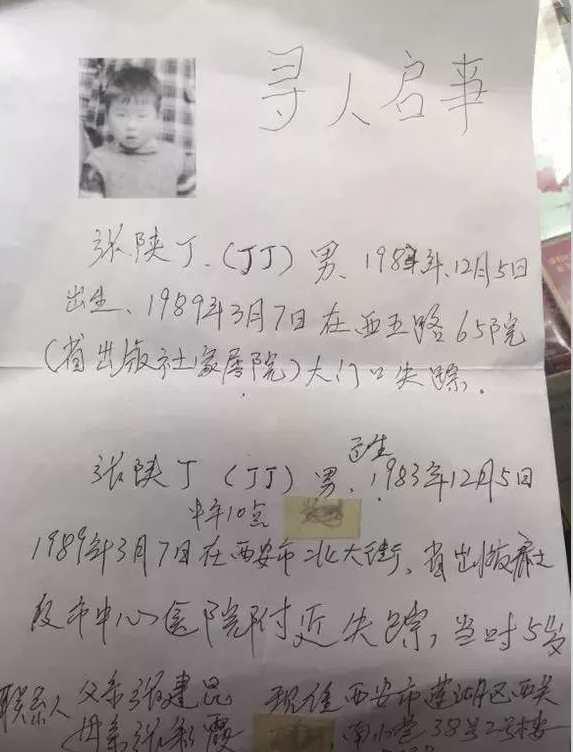 寻人启事
张陕丁、(丁丁)男、1983年、12月5日
出生、1989年3月7日在西五路65院
(省出版社家属院)大门口失踪.
张陕丁(丁丁)男、1983年12月5日
1989年3月7日在西安市北大街、省出版社
及市中心医院附近失踪,当时5岁
联系人 父亲张建昆 现住西安市莲湖区西关
母亲张彩霞 南小巷38号2号楼